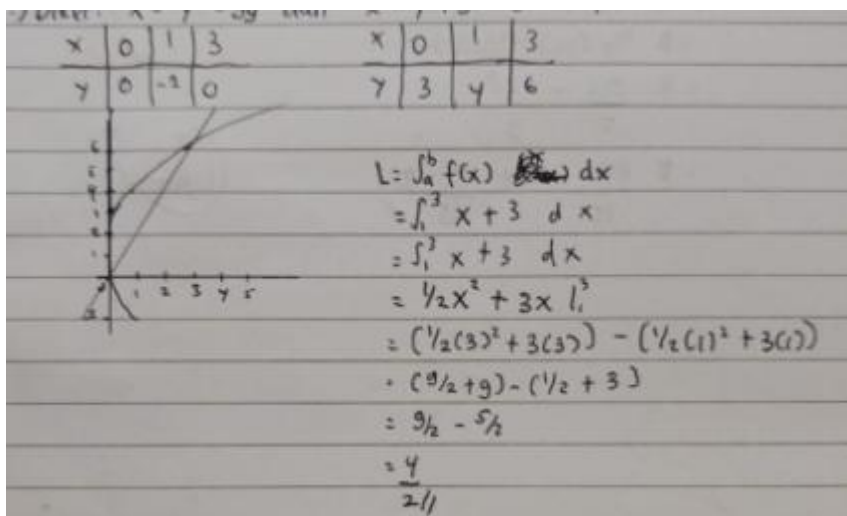 x | 0 | 1 | 3
y | 0 | -2 | 0
x | 0 | 1 | 3
y | 3 | 4 | 6
1 2 3 4 5
L = ∫ₐᵇ f(x) dx
= ∫₁³ x + 3 d x
= ∫₁³ x + 3 dx
= 1/2x² + 3x |₁³
= (1/2(3)² + 3(3)) - (1/2(1)² + 3(1))
= (9/2 + 9) - (1/2 + 3)
= 9/2 - 5/2
= 4/2 //